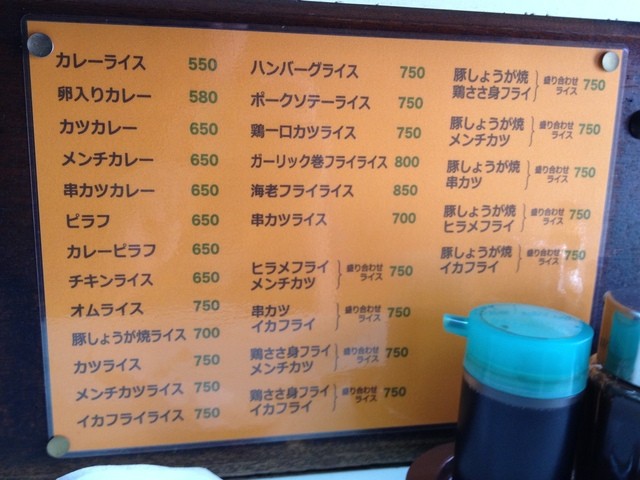 カレーライス 550
卵入りカレー 580
カツカレー 650
メンチカレー 650
串カツカレー 650
ピラフ 650
カレーピラフ 650
チキンライス 650
オムライス 750
豚しょうが焼ライス 700
カツライス 750
メンチカツライス 750
イカフライライス 750
ハンバーグライス 750
ポークソテーライス 750
鶏一口カツライス 750
ガーリック巻フライライス 800
海老フライライス 850
串カツライス 700
ヒラメフライ
メンチカツ
盛り合わせ
ライス
750
串カツ
イカフライ
盛り合わせ
ライス
750
鶏ささ身フライ
メンチカツ
盛り合わせ
ライス
750
鶏ささ身フライ
イカフライ
盛り合わせ
ライス
750
豚しょうが焼
鶏ささ身フライ
盛り合わせ
ライス
750
豚しょうが焼
メンチカツ
盛り合わせ
ライス
750
豚しょうが焼
串カツ
盛り合わせ
ライス
750
豚しょうが焼
ヒラメフライ
盛り合わせ
ライス
750
豚しょうが焼
イカフライ
盛り合わせ
ライス
750